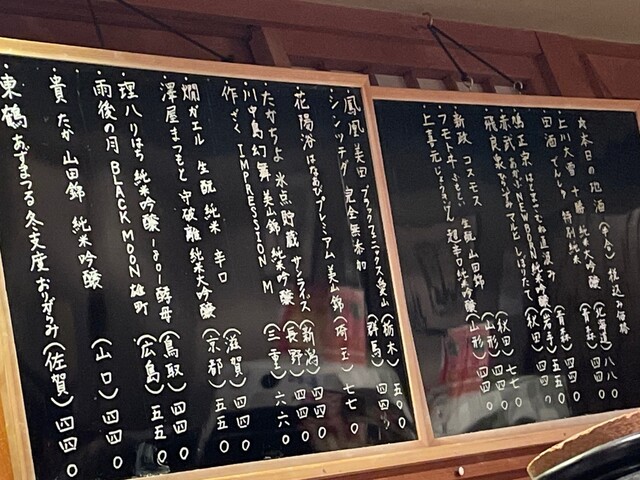 ★本日の地酒(半合)税込み価格
上川大雪 十勝 純米大吟醸 (北海道) 八八〇
田酒 でんしゅ 特別純米 (青森) 四四〇
鳩正宗 はとまさむね 直汲み 純米吟醸 (青森) 五五〇
赤武 あかぶ NEWBORN 純米吟醸 (岩手)
飛良泉 マルヒ しぼりたて (秋田)
新政 コスモス (秋田) 七七〇
フモトヰ ふもとい 生酛 山田錦 (山形) 四四〇
上喜元 じょうきげん 超辛口 純米吟醸 (山形) 四四〇
鳳凰美田 ブラックフェニックス 愛山 (栃木) 五五〇
シンツチダ 完全無添加 (群馬) 四四〇
花陽浴 はなあび プレミアム 美山錦 (埼玉) 七七〇
たかちよ 氷点貯蔵 サンライズ (新潟) 四四〇
川中島 幻舞 美山錦 純米吟醸 (長野) 四四〇
作 ざく IMPRESSION M (三重) 六六〇
燗ガエル 生酛 純米 辛口 (滋賀) 四四〇
澤屋まつもと 守破離 純米大吟醸 (京都) 五五〇
理八 りはち 純米吟醸 1801酵母 (鳥取) 四四〇
雨後の月 BLACK MOON 雄町 (広島) 五五〇
貴 たか 山田錦 純米吟醸 (山口) 四四〇
東鶴 あずまつる 冬支度 おりがらみ (佐賀) 四四〇